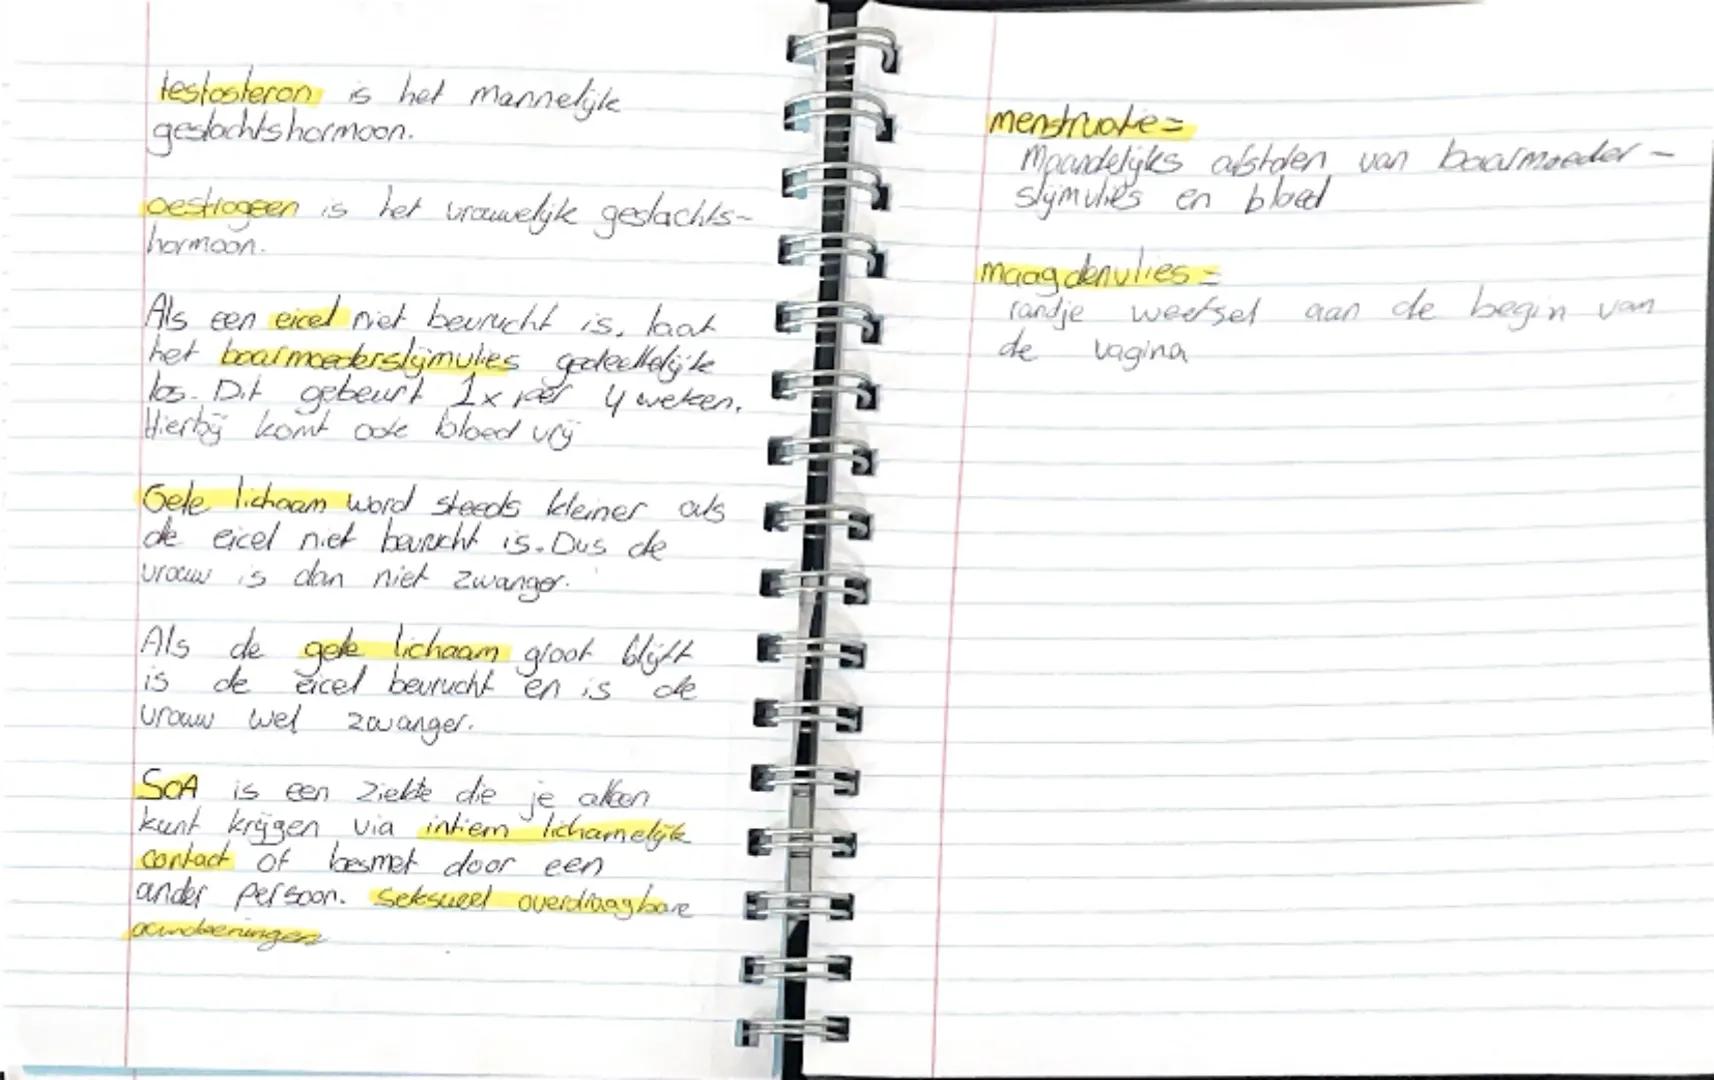 testosteron is het mannelijke
geslachtshormoon.
oestrogeen is het vrouwelijk geslachts-
hormoon.
Als een eicel niet bevrucht is, laat
het baarmoederslijmvlies gedeeltelijke
los. Dit gebeurt 1x per 4 weken.
Hierbij komt ook bloed vrij
Gele lichaam word steeds kleiner als
de eicel niet bevrucht is. Dus de
vrouw is dan niet zwanger.
Als de gele lichaam groot blijft
is de eicel bevrucht en is de
vrouw wel zwanger.
SOA is een ziekte die je alleen
kunt krijgen via intiem lichamelijk
contact of besmet door een
ander persoon. seksueel overdraagbare
aandoeningen
menstruatie=
Maandelijks afstoten van baarmoeder-
slijmvlies en bloed
maagdenvlies =
randje weefsel aan de begin van
de vagina